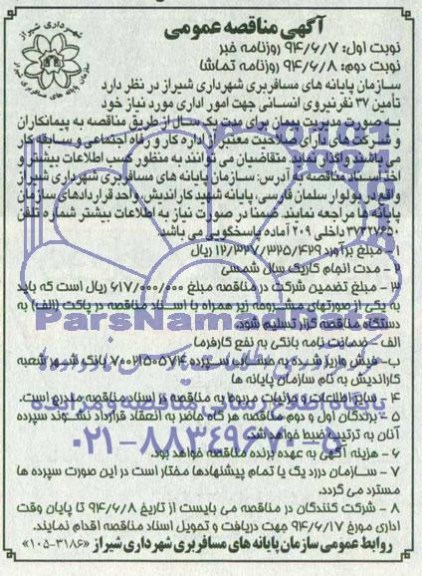 آگهی مناقصه عمومی
شهرداری شیراز
سازمان پایانه های مسافربری شیراز
نوبت اول: ۹۴/۶/۷ روزنامه خبر
نوبت دوم: ۹۴/۶/۸ روزنامه تماشا
سازمان پایانه های مسافربری شهرداری شیراز در نظر دارد
تأمین ۳۷ نفر نیروی انسانی جهت امور اداری مورد نیاز خود
به صورت مدیریت پیمان برای مدت یک سال از طریق مناقصه به پیمانکاران
و شرکت های دارای صلاحیت معتبر از اداره کار و رفاه اجتماعی و سابقه کار
می باشند واگذار نماید. متقاضیان می توانند به منظور کسب اطلاعات بیشتر و
اخذ اسناد مناقصه به آدرس: سازمان پایانه های مسافربری شهرداری شیراز
واقع در بولوار سلمان فارسی، پایانه شهید کاراندیش، واحد قراردادهای سازمان
پایانه ها مراجعه نمایند. ضمنا در صورت نیاز به اطلاعات بیشتر شماره تلفن
۳۷۳۲۷۶۵۰ داخلی ۲۰۹ آماده پاسخگویی می باشد.
۱ - مبلغ برآورد ۱۲/۳۲۷/۳۲۵/۴۲۹ ریال
۲ - مدت انجام کار یک سال شمسی
۳ - مبلغ تضمین شرکت در مناقصه مبلغ ۶۱۷/۰۰۰/۰۰۰ ریال است که باید
به یکی از صورتهای مشروحه زیر همراه با اسناد مناقصه در پاکت (الف) به
دستگاه مناقصه گزار تسلیم شود.
الف - ضمانت نامه بانکی به نفع کارفرما
ب- فیش واریز شده به حساب سپرده ۷۰۰۲۱۵۰۵۷۱۴ بانک شهر شعبه
کاراندیش به نام سازمان پایانه ها
۴ - سایر اطلاعات و جزئیات مربوط به مناقصه در اسناد مناقصه مندرج است.
۵ - برندگان اول و دوم مناقصه هر گاه حاضر به انعقاد قرارداد نشوند سپرده
آنان به ترتیب ضبط خواهد شد.
۶ - هزینه آگهی به عهده برنده مناقصه خواهد بود.
۷ - سازمان در رد یک یا تمام پیشنهادها مختار است در این صورت سپرده ها
مسترد می گردد.
۸ - شرکت کنندگان در مناقصه می بایست از تاریخ ۹۴/۶/۸ تا پایان وقت
اداری مورخ ۹۴/۶/۱۷ جهت دریافت و تحویل اسناد مناقصه اقدام نمایند.
روابط عمومی سازمان پایانه های مسافربری شهرداری شیراز «۳۱۸۶-۱۰۵»
ParsNamadData
پایگاه اطلاع رسانی مناقصه و مزایده
۰۲۱-۸۸۳۴۹۶۷۰-۵